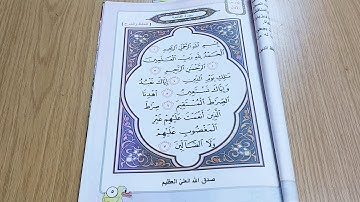 بِسْمِ اللَّهِ الرَّحْمَٰنِ الرَّحِيمِ
الْحَمْدُ لِلَّهِ رَبِّ الْعَالَمِينَ
الرَّحْمَٰنِ الرَّحِيمِ
مَالِكِ يَوْمِ الدِّينِ إِيَّاكَ نَعْبُدُ
وَإِيَّاكَ نَسْتَعِينُ اهْدِنَا
الصِّرَاطَ الْمُسْتَقِيمَ صِرَاطَ
الَّذِينَ أَنْعَمْتَ عَلَيْهِمْ غَيْرِ
الْمَغْضُوبِ عَلَيْهِمْ
وَلَا الضَّالِّينَ
صدق الله العلي العظيم
٥